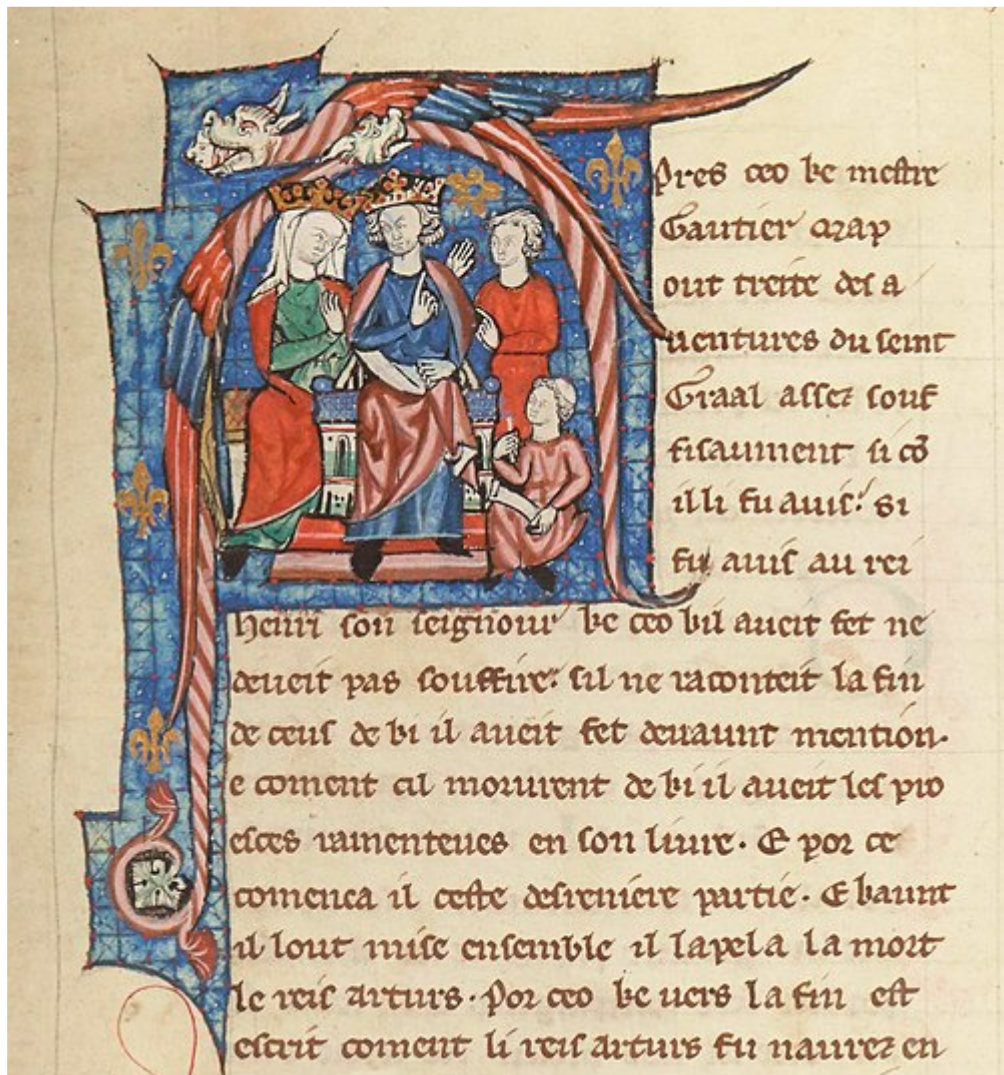 Pres ceo ke mestre
Gautier map
out treite des a
uentures du seint
Graal assez souf
fisaument si cõ
il li fu auis: si
fu auis au rei
henri son seignour ke ceo kil aueit fet ne
deueit pas souffire: sil ne raconteit la fin
de ceus de ki il aueit fet deuaunt mention.
e coment cil morurent de ki il aueit les pro
esces ramenteues en son liure. E por ce
comenca il ceste desreniere partie. E kaunt
il lout mise ensemble il lapela la mort
le reis arturs. Por ceo ke uers la fin est
escrit coment li reis arturs fu naurez en